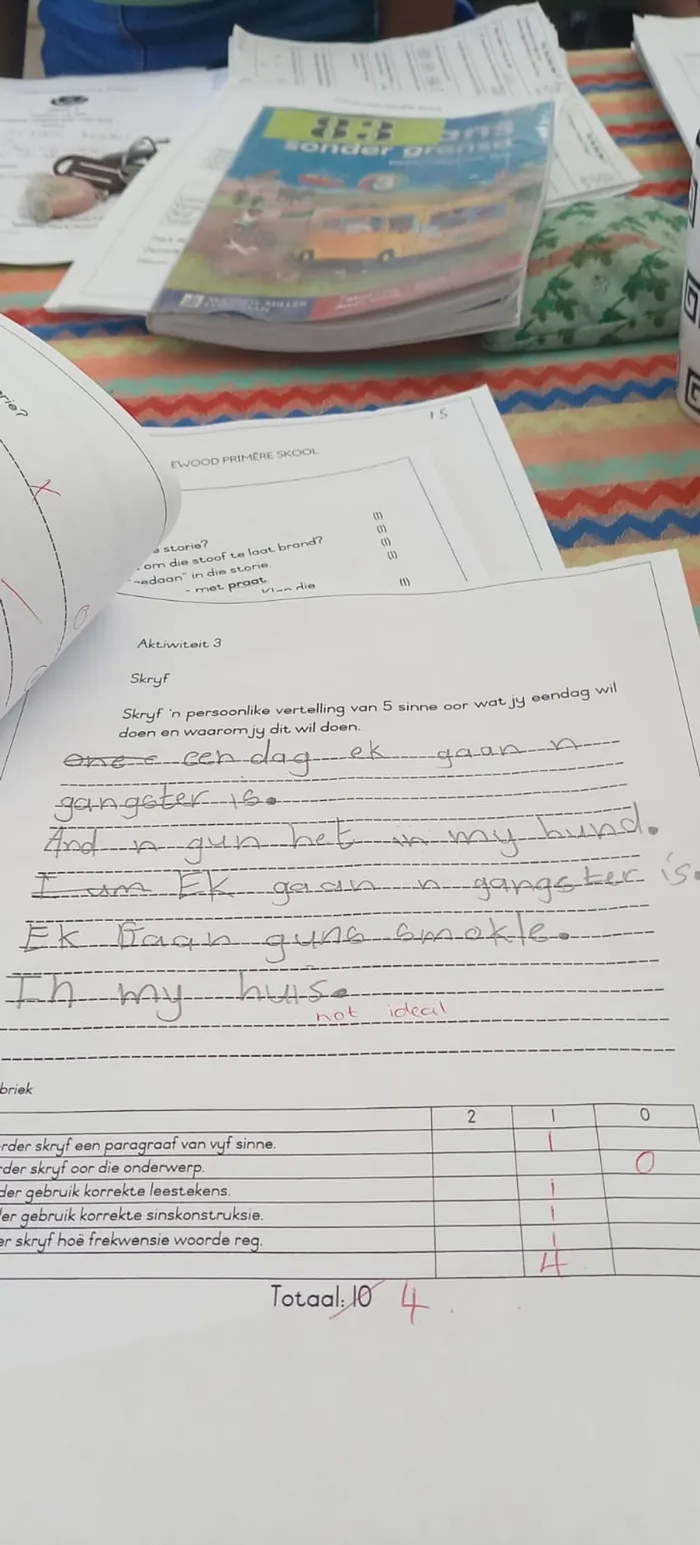 83 ans
sonder grense
MASKEW MILLER
LONGMAN
15
EWOOD PRIMÊRE SKOOL
orie?
storie? (1)
om die stoof te laat brand? (1)
edaan" in die storie. (1)
met praat. (1)
die (1)
Aktiwiteit 3
Skryf
Skryf 'n persoonlike vertelling van 5 sinne oor wat jy eendag wil
doen en waarom jy dit wil doen.
one e een dag ek gaan n
gangster is.
And n gun het in my hund.
I um Ek gaan n gangster is.
Ek Gaan guns smokle.
In my huis.
not ideal
briek
2 1 0
rder skryf een paragraaf van vyf sinne. 1
der skryf oor die onderwerp. 0
der gebruik korrekte leestekens. 1
er gebruik korrekte sinskonstruksie. 1
er skryf hoë frekwensie woorde reg. 1
4
Totaal: 10 4